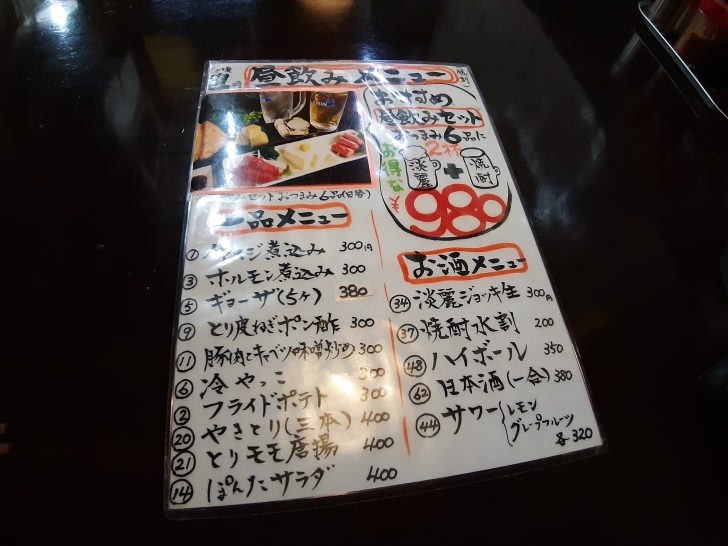 昼飲みメニュー
おすすめ
昼飲みセット
おつまみ6品に
2杯
お得な
淡麗 + 焼酎
980
セットおつまみ6品(日替)
一品メニュー
① 煮込み 300円
③ ホルモン煮込み 300
⑤ ギョーザ(5ヶ) 380
⑨ とり皮ねぎポン酢 300
⑪ 豚肉とキャベツの味噌炒め 300
⑥ 冷やっこ 300
② フライドポテト 300
⑳ やきとり(三本) 400
㉑ とりモモ唐揚 400
⑭ ぽんたサラダ 400
お酒メニュー
㉞ 淡麗ジョッキ生 300円
㊲ 焼酎水割 200
㊽ ハイボール 350
62 日本酒(一合) 380
㊹ サワー レモン
グレープフルーツ
各320